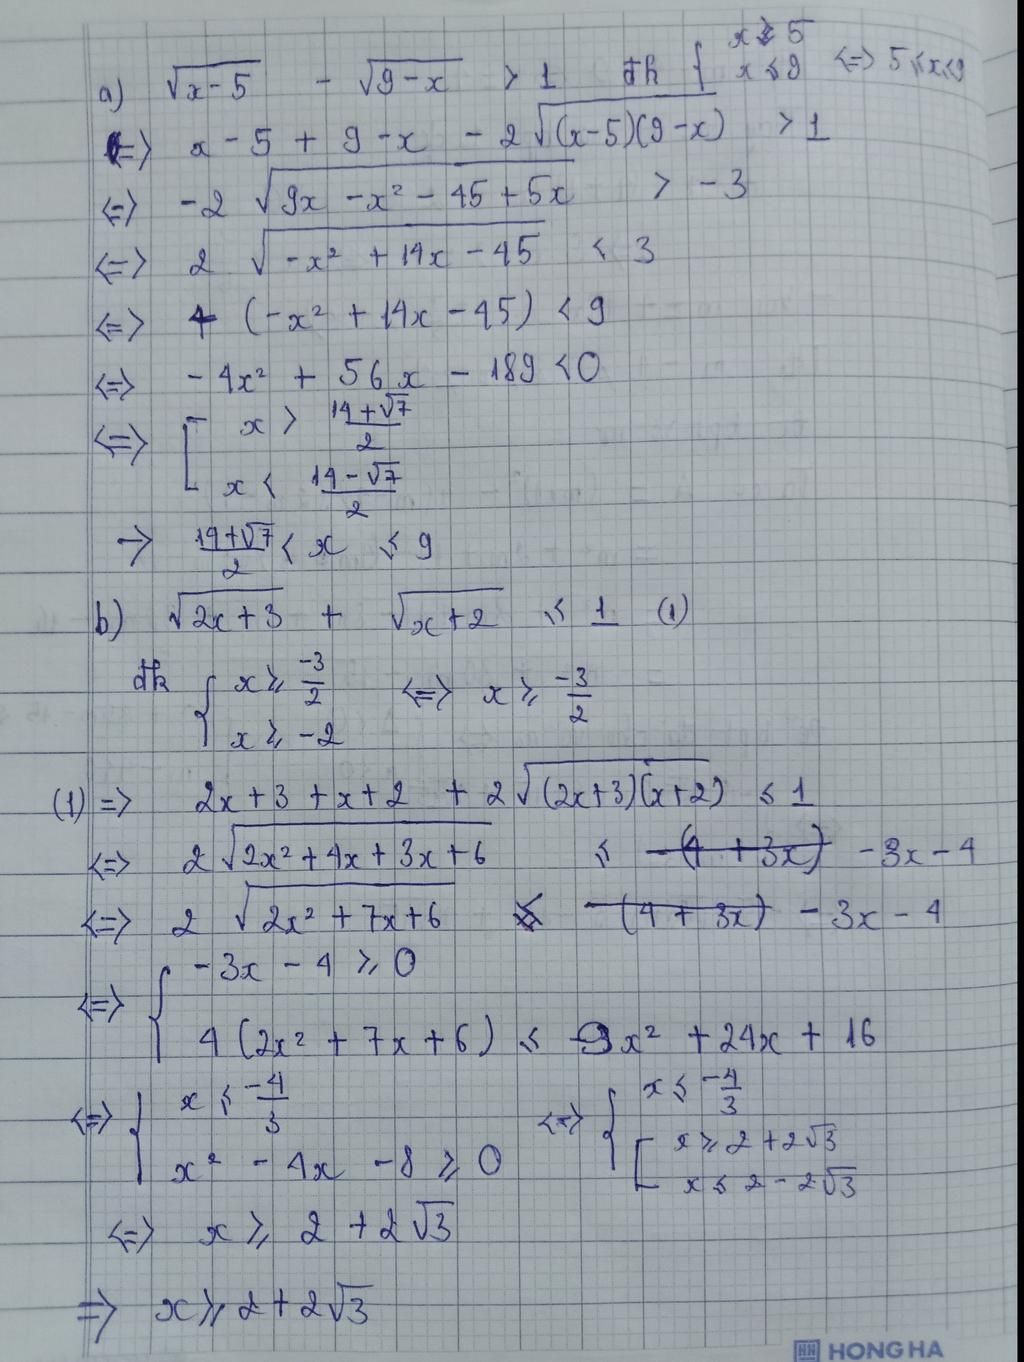 a) √(x-5) - √(9-x) > 1 đk { x ≥ 5
x ≤ 9 <=> 5 ≤ x ≤ 9
<=> x - 5 + 9 - x - 2√((x-5)(9-x)) > 1
<=> -2 √(9x - x² - 45 + 5x) > -3
<=> 2 √(-x² + 14x - 45) < 3
<=> 4 (-x² + 14x - 45) < 9
<=> -4x² + 56x - 189 < 0
<=> [ x > (14+√7)/2
x < (14-√7)/2
→ (14+√7)/2 < x ≤ 9
b) √(2x+3) + √(x+2) ≤ 1 (1)
đk { x ≥ -3/2 <=> x ≥ -3/2
x ≥ -2
(1) => 2x + 3 + x + 2 + 2√((2x+3)(x+2)) ≤ 1
<=> 2√(2x² + 4x + 3x + 6) ≤ -(4 + 3x) -3x - 4
<=> 2 √(2x² + 7x + 6) ≤ -(4 + 3x) -3x - 4
<=> { -3x - 4 ≥ 0
4(2x² + 7x + 6) ≤ 9x² + 24x + 16
<=> { x ≤ -4/3 <=> { x ≤ -4/3
x² - 4x - 8 ≥ 0 [ x ≥ 2 + 2√3
x ≤ 2 - 2√3
<=> x ≥ 2 + 2√3
=> x ≥ 2 + 2√3
HONG HA